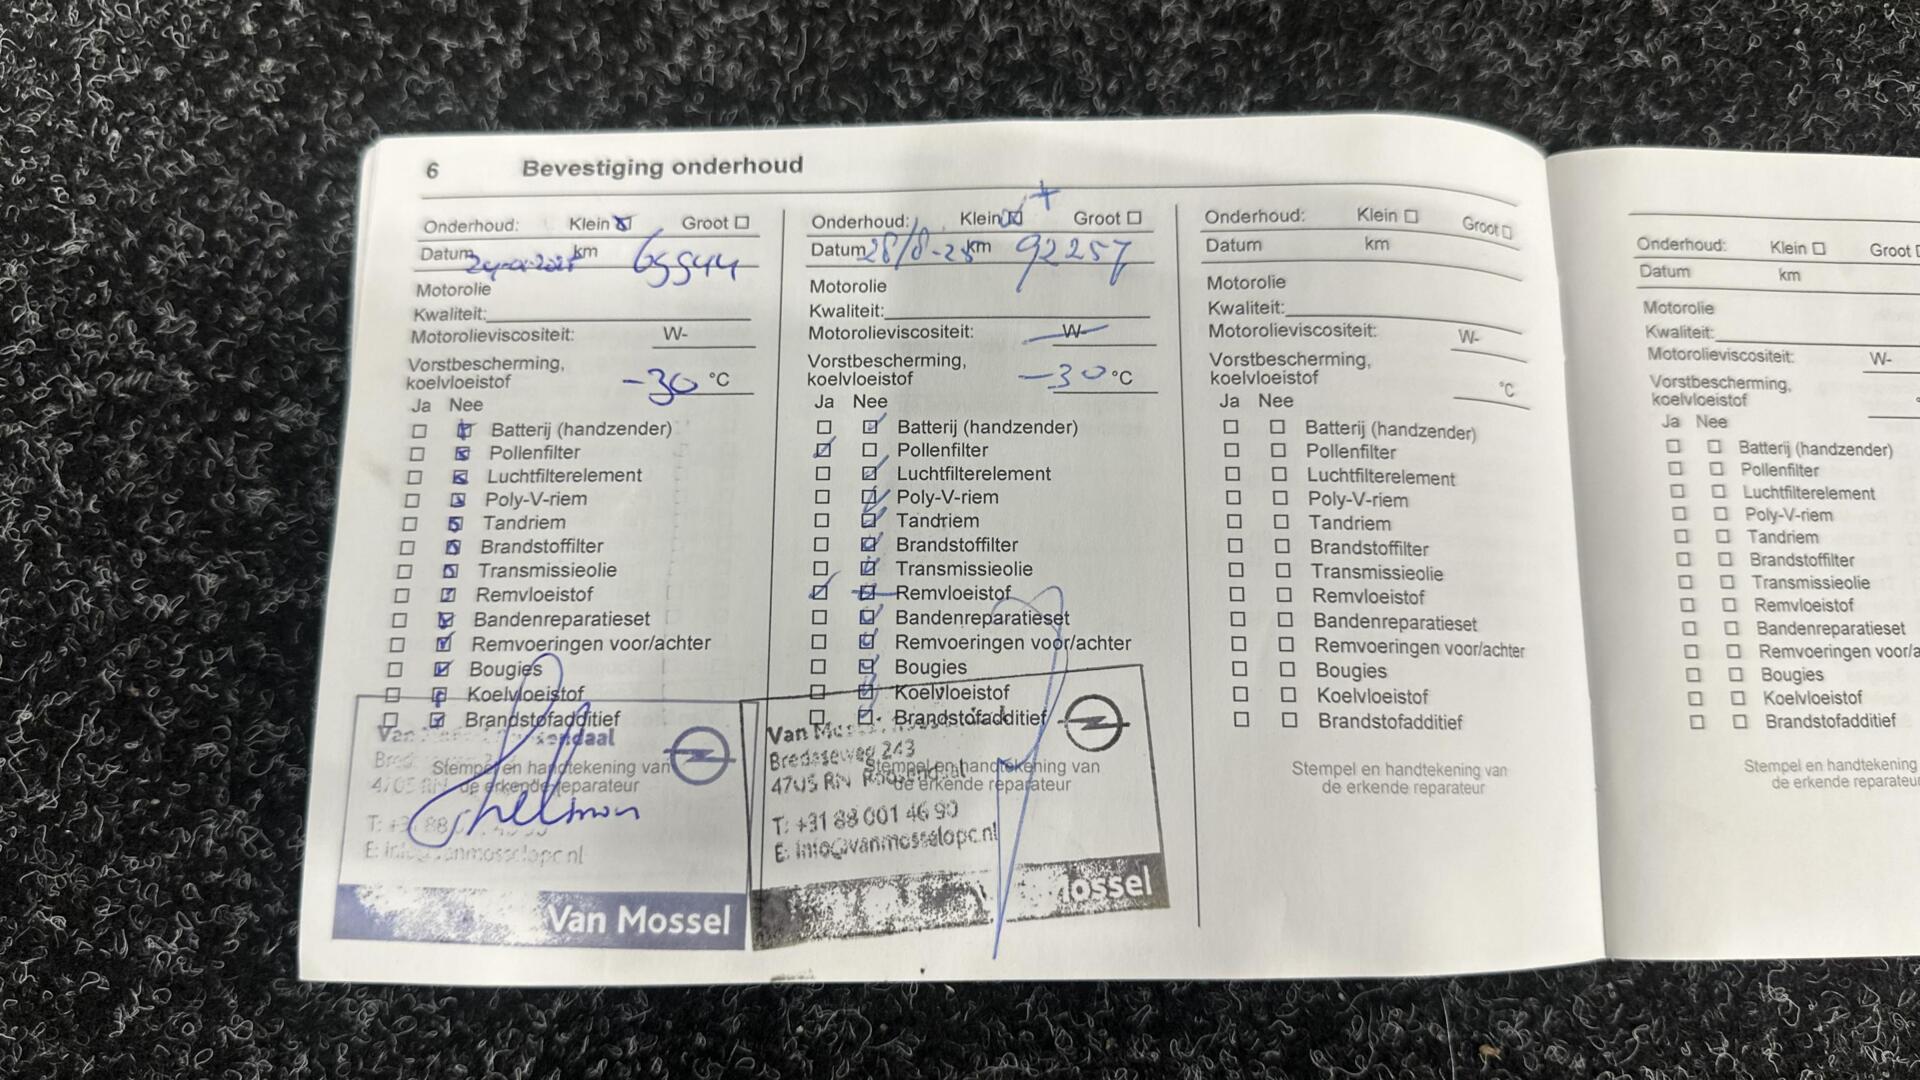 6 Bevestiging onderhoud
Onderhoud: Klein Groot
Datum km
Motorolie
Kwaliteit:
Motorolieviscositeit: W-
Vorstbescherming,
koelvloeistof -30 °C
Ja Nee
Batterij (handzender)
Pollenfilter
Luchtfilterelement
Poly-V-riem
Tandriem
Brandstoffilter
Transmissieolie
Remvloeistof
Bandenreparatieset
Remvoeringen voor/achter
Bougies
Koelvloeistof
Brandstofadditief
Stempel en handtekening van
de erkende reparateur
Van Mossel
Onderhoud: Klein + Groot
Datum km 92257
Motorolie
Kwaliteit:
Motorolieviscositeit: W-
Vorstbescherming,
koelvloeistof -30 °C
Ja Nee
Batterij (handzender)
Pollenfilter
Luchtfilterelement
Poly-V-riem
Tandriem
Brandstoffilter
Transmissieolie
Remvloeistof
Bandenreparatieset
Remvoeringen voor/achter
Bougies
Koelvloeistof
Brandstofadditief
Stempel en handtekening van
de erkende reparateur
Bredaseweg 243
4705 RN Roosendaal
T: +31 88 001 46 90
E: info@vanmosselopc.nl
Mossel
Onderhoud: Klein Groot
Datum km
Motorolie
Kwaliteit:
Motorolieviscositeit: W-
Vorstbescherming,
koelvloeistof °C
Ja Nee
Batterij (handzender)
Pollenfilter
Luchtfilterelement
Poly-V-riem
Tandriem
Brandstoffilter
Transmissieolie
Remvloeistof
Bandenreparatieset
Remvoeringen voor/achter
Bougies
Koelvloeistof
Brandstofadditief
Stempel en handtekening van
de erkende reparateur
Onderhoud: Klein Groot
Datum km
Motorolie
Kwaliteit:
Motorolieviscositeit: W-
Vorstbescherming,
koelvloeistof
Ja Nee
Batterij (handzender)
Pollenfilter
Luchtfilterelement
Poly-V-riem
Tandriem
Brandstoffilter
Transmissieolie
Remvloeistof
Bandenreparatieset
Remvoeringen voor/a
Bougies
Koelvloeistof
Brandstofadditief
Stempel en handtekening
de erkende reparateu